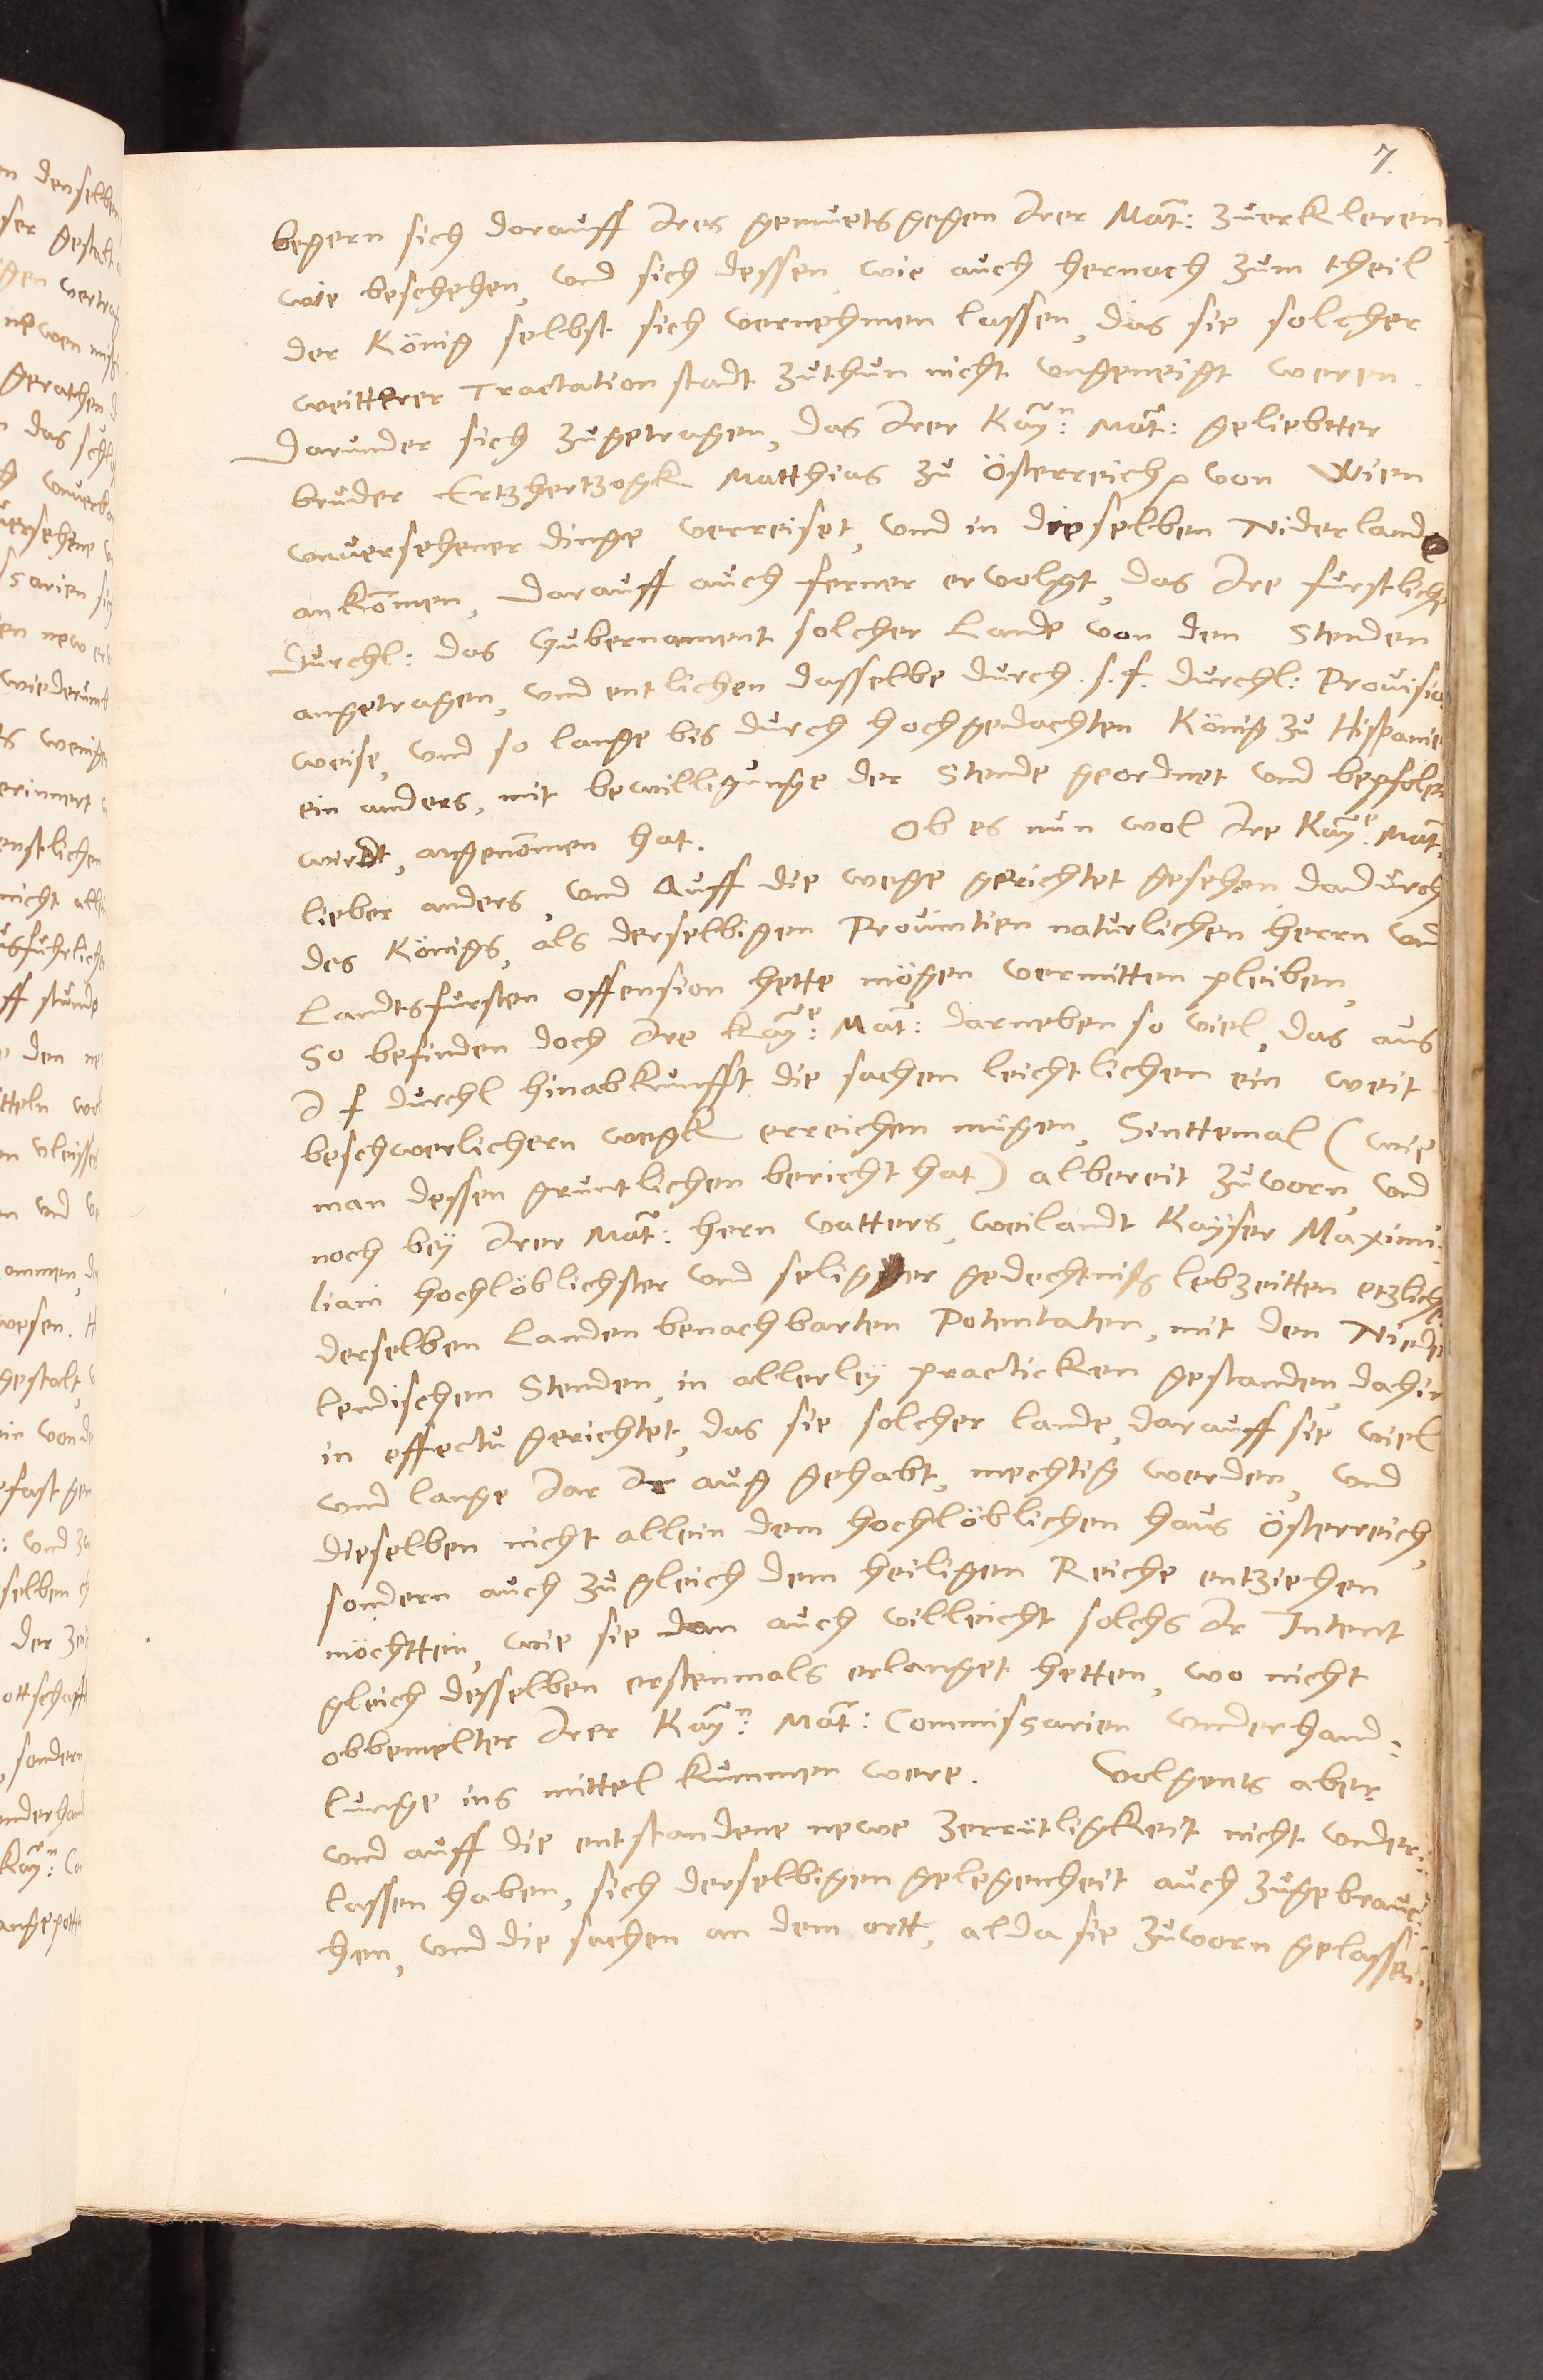 7.
begern sich darauff Ires gemuets gegen Irer Mat: zuerkleren,
wie beschehen, und sich dessen, wie auch hernach zum theil
der König selbst sich vernehmen lassen, das sie solcher
weitterer Tractation stadt zuthun nicht ungeneigt weren.
Darunder sich zugetragen, das Irer Kayn: Mat: geliebter
bruder Ertzhertzogk Matthias zu Österreich von Wien
unversehener dinge verreiset, und in dieselben Niderlande
ankommen, Darauff auch ferner ervolgt, das Ire furstliche
Durchl: das Gubernament solcher Lande von den Stenden
angetragen, und entlichen dasselbe durch s. f. Durchl: Provision
weise, und so lange bis durch hochgedachten König zu Hispanien
ein anders, mit bewilligunge der Stende geordnet und bepfolen
wirdt, angenommen hat. Ob es nun wol Ire Kaye: Mat:
lieber anders, und auff die wege gerichtet gesehen, dadurch
des Königs, als derselbigen Provintien naturlichen herrn und
Landtsfursten offension hette mögen vermitten pleiben,
So befinden doch Ire Kaye: Mat: darneben so viel, das aus
I f Durchl hinabkunfft die sachen leichtlichen ein weit
beschwerlichern wegk erreichen mügen, Sinttemal (wie
man dessen gruntlichen bericht hat) albereit zuvorn, und
noch bey Irer Mat: hern vatters, weilandt Kayser Maximi:
liani hochlöblichster und seligster gedechtniss lebzeitten etzliche
derselben Landen benachbarten Potentaten, mit den Nieder
lendischen Stenden, in allerley practicken gestanden, dahin
in effectu gerichtet, das sie solcher lande, darauff sie viel
und lange Jar Ir aug gehabt, mechtig werden, und
dieselben nicht allein dem hochlöblichen haus Österreich,
sondern auch zugleich dem heiligen Reiche entziehen
möchtten, wie sie dan auch villeicht solchs Ir Intent
gleich desselben erstenmals erlanget hetten, wo nicht
obbemelter Irer Kayn: Mat: Commissarien underhand:
lunge ins mittel kummen were. Volgents aber
und auff die entstandene newe zerrütligkeit nicht under:
lassen haben, sich derselbigen gelegenheit auch zugebrauc:
hen, und die sachen an dem ortt, alda sie zuvorn gelassen,